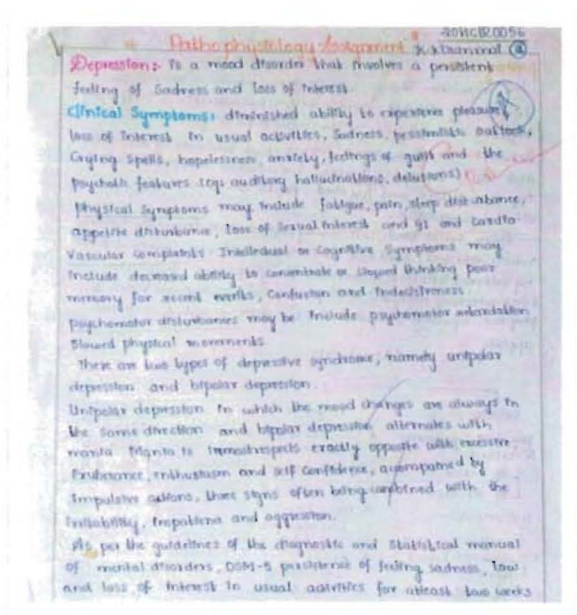 Pathophysiology Assignment
Depression:- is a mood disorder that involves a persistent
feeling of Sadness and loss of interest.
Clinical Symptoms: diminished ability to experience pleasure,
loss of interest in usual activities, Sadness, pessimistic outlook,
Crying Spells, hopelessness, anxiety, feelings of guilt and the
psychotic features (eg: auditory hallucinations, delusions)
physical Symptoms may include fatigue, pain, sleep disturbance,
appetite disturbance, loss of Sexual interest and GI and Cardio
Vascular complaints Intellectual or Cognitive Symptoms may
include decreased ability to concentrate or slowed thinking poor
memory for recent events, Confusion and indecisiveness
psychomotor disturbances may be include psychomotor retardation
Slowed physical movements.
There are two types of depressive syndrome, namely unipolar
depression and bipolar depression.
Unipolar depression in which the mood changes are always in
the same direction and bipolar depression alternates with
mania Mania is exactly opposite with excessive
Exuberance, enthusiasm and self Confidence, by
Impulsive actions, these signs often being combined with the
and aggression.
As per the guidelines of the diagnostic and Statistical manual
of mental disorders, DSM-5 persistence of feeling sadness, low
and loss of interest in usual activities for atleast two weeks